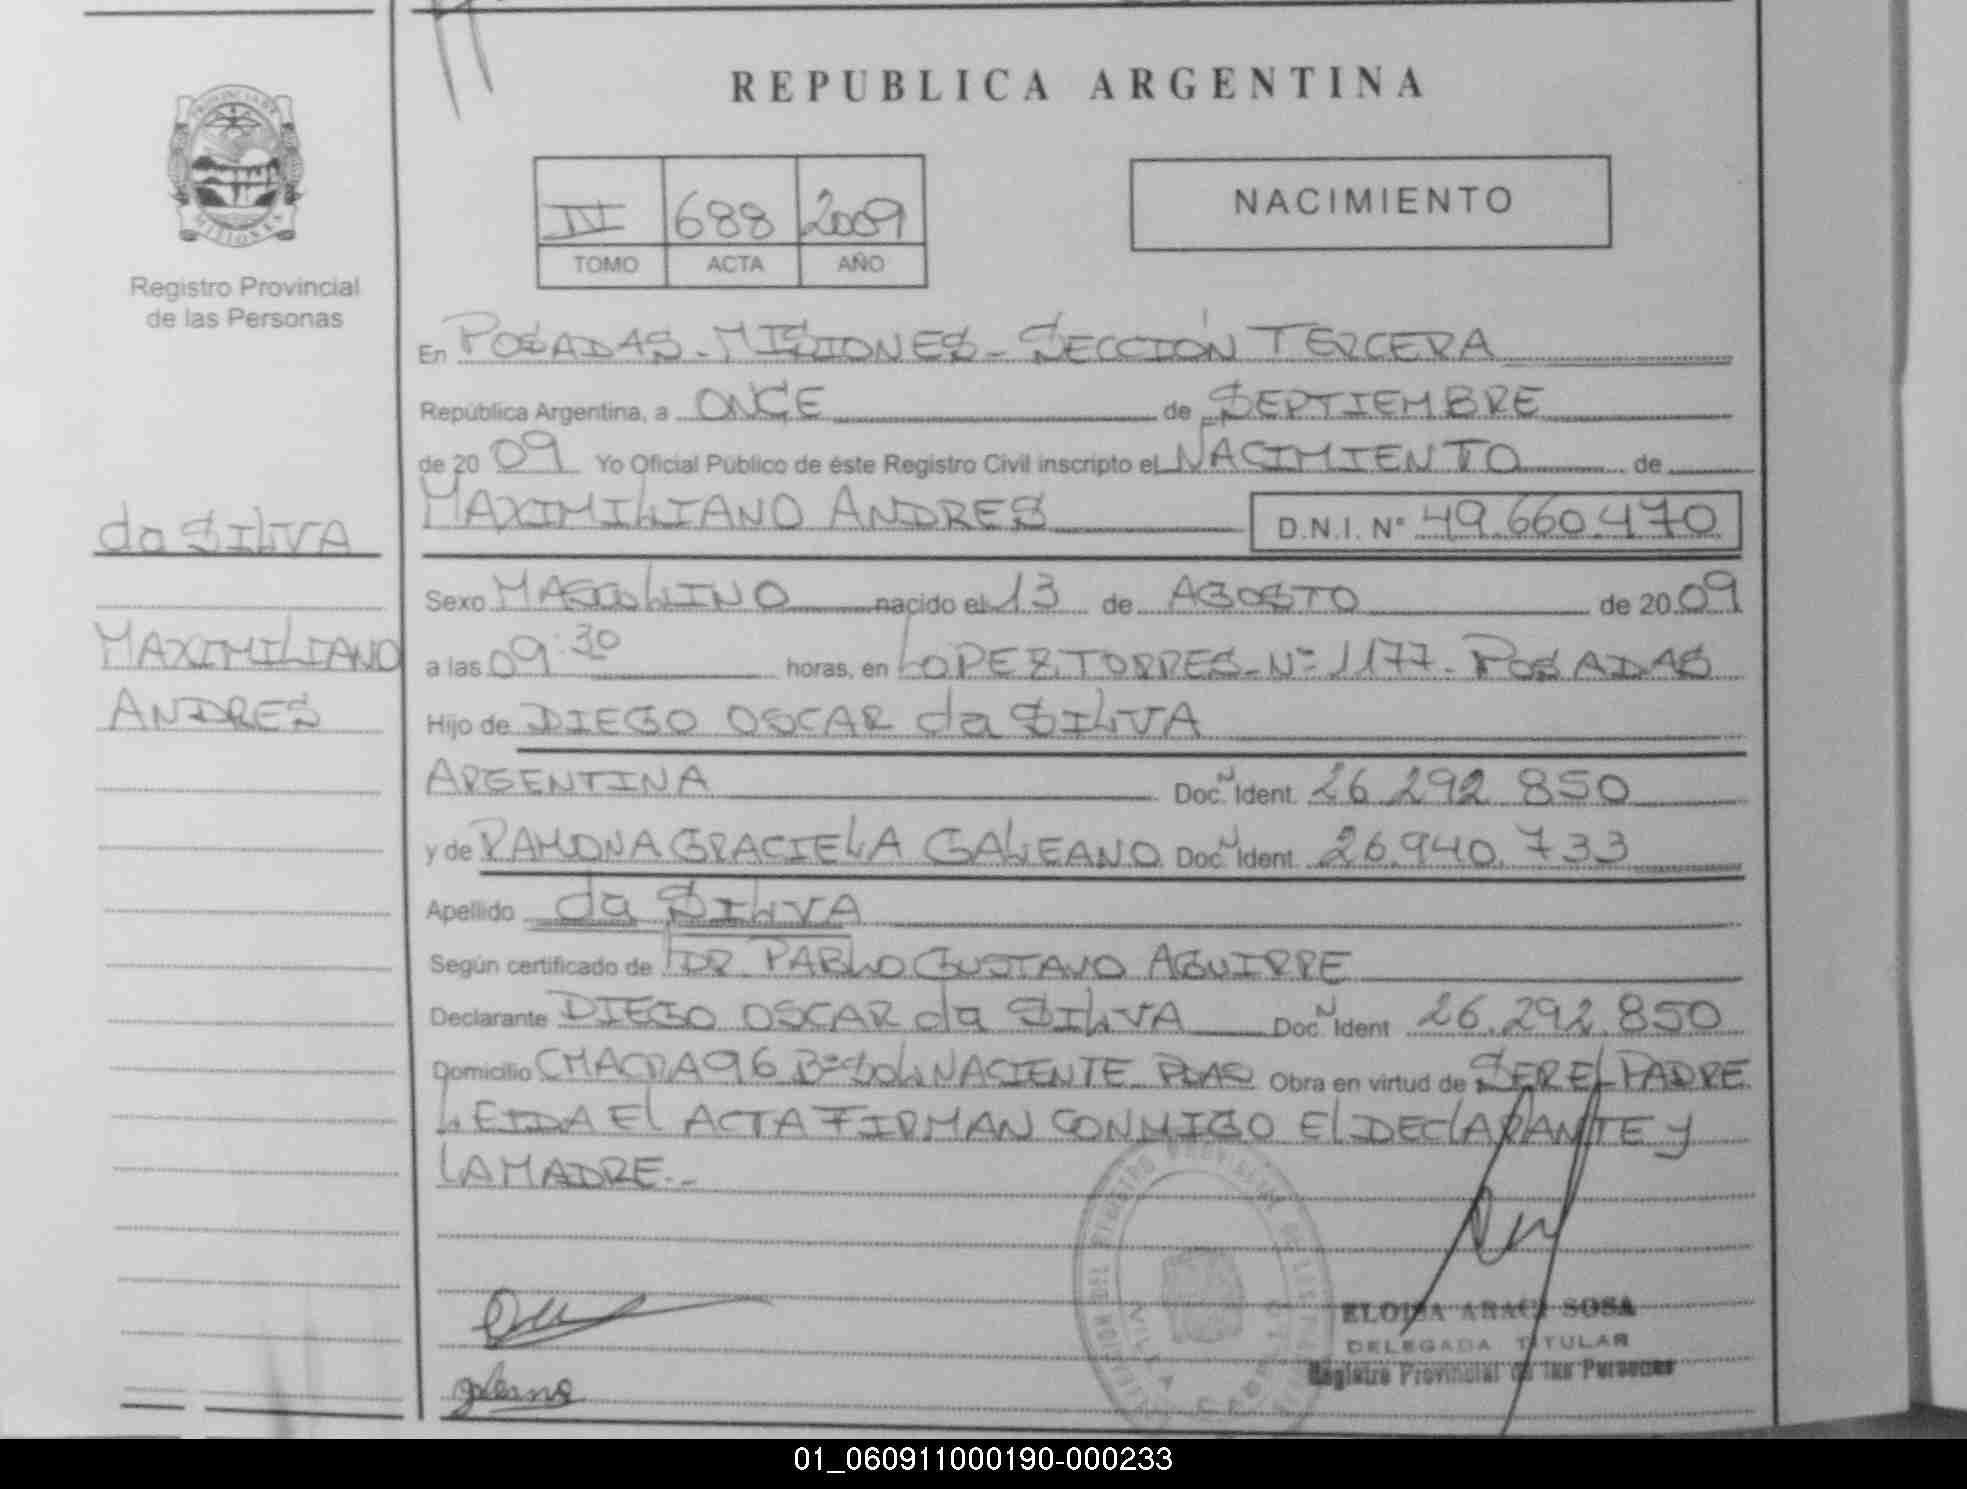 REPUBLICA ARGENTINA
PROVINCIA DE
MISIONES
Registro Provincial
de las Personas
IV 688 2009
TOMO ACTA AÑO
NACIMIENTO
En POSADAS-MISIONES-SECCIÓN TERCERA
República Argentina, a ONCE de SEPTIEMBRE
de 20 09 Yo Oficial Público de éste Registro Civil inscripto el NACIMIENTO de
MAXIMILIANO ANDRES D.N.I. N° 49.660.470
da SILVA
MAXIMILIANO
ANDRES
Sexo MASCULINO nacido el 13 de AGOSTO de 20 09
a las 09:30 horas, en LOPEZ TORRES-N° 1177-POSADAS
Hijo de DIEGO OSCAR da SILVA
ARGENTINA Doc. N Ident. 26.292.850
y de RAMONA GRACIELA GALEANO Doc. N Ident. 26.940.733
Apellido da SILVA
Según certificado de DR. PABLO GUSTAVO AGUIRRE
Declarante DIEGO OSCAR da SILVA Doc. N Ident 26.292.850
Domicilio CHACRA 96 B° SOL NACIENTE PDAS Obra en virtud de SER EL PADRE
LEIDA El ACTA FIRMAN CONMIGO El DEClARANTE y
lA MADRE.-
galeano
ELOISA ARACI SOSA
DELEGADA TITULAR
Registro Provincial de las Personas
01_060911000190-000233